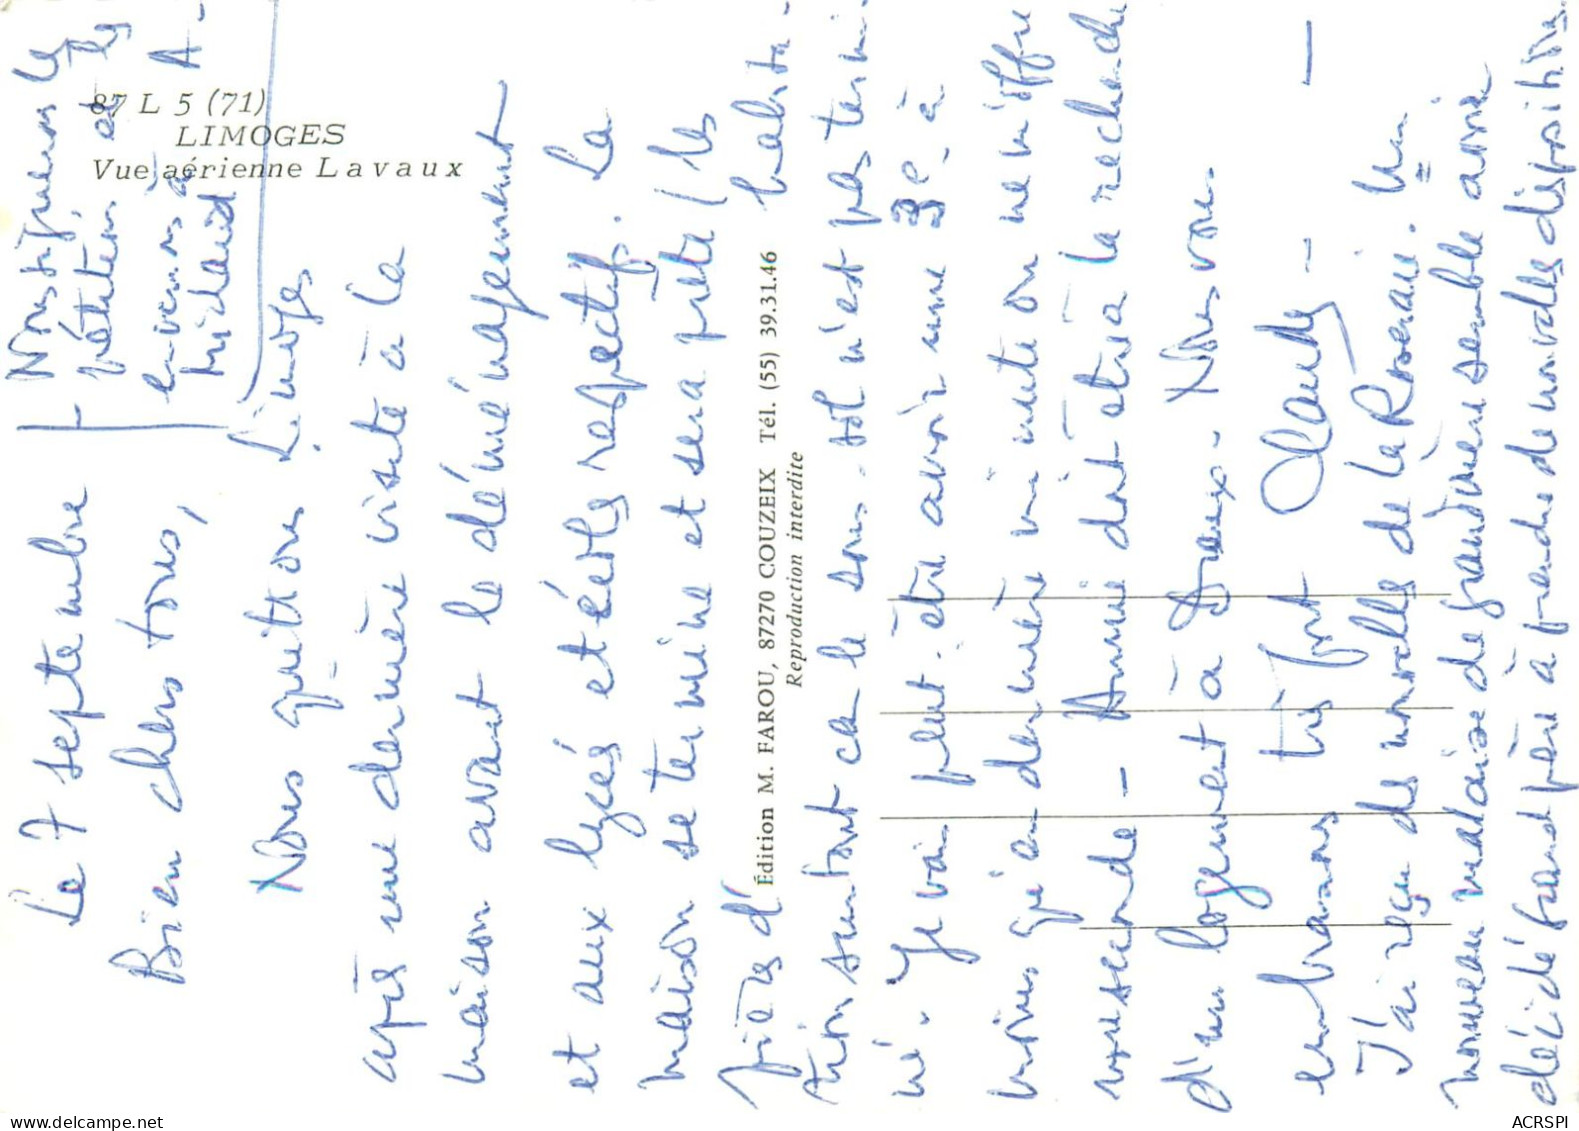 87 L 5 (71)
LIMOGES
Vue aérienne Lavaux
Édition M. FAROU, 87270 COUZEIX Tél. (55) 39.31.46
Reproduction interdite
Le 7 septembre
Bien chers tous,
Nous quittons Limoges
après une dernière visite à la
maison avant le déménagement
et aux lycés et écoles respectifs. La
maison se termine et sera prête (les
pièces d' habita-
tion surtout car le sous-sol n'est pas termi-
né. Je vais peut-être avoir une 3e à
moins qu'au dernière minute on ne m'offre
une seconde - Annie doit être à la recherche
d'un logement à Dreux. Nous vous
embrassons très fort Claude
J'ai reçu de nouvelles de la Roseraie. Un
nouveau malaise de grand'mère semble avoir
décidé grand père à prendre de nouvelles dispositions.
+ Nous signerons les
et les
à A-
Michaud
ACRSPI